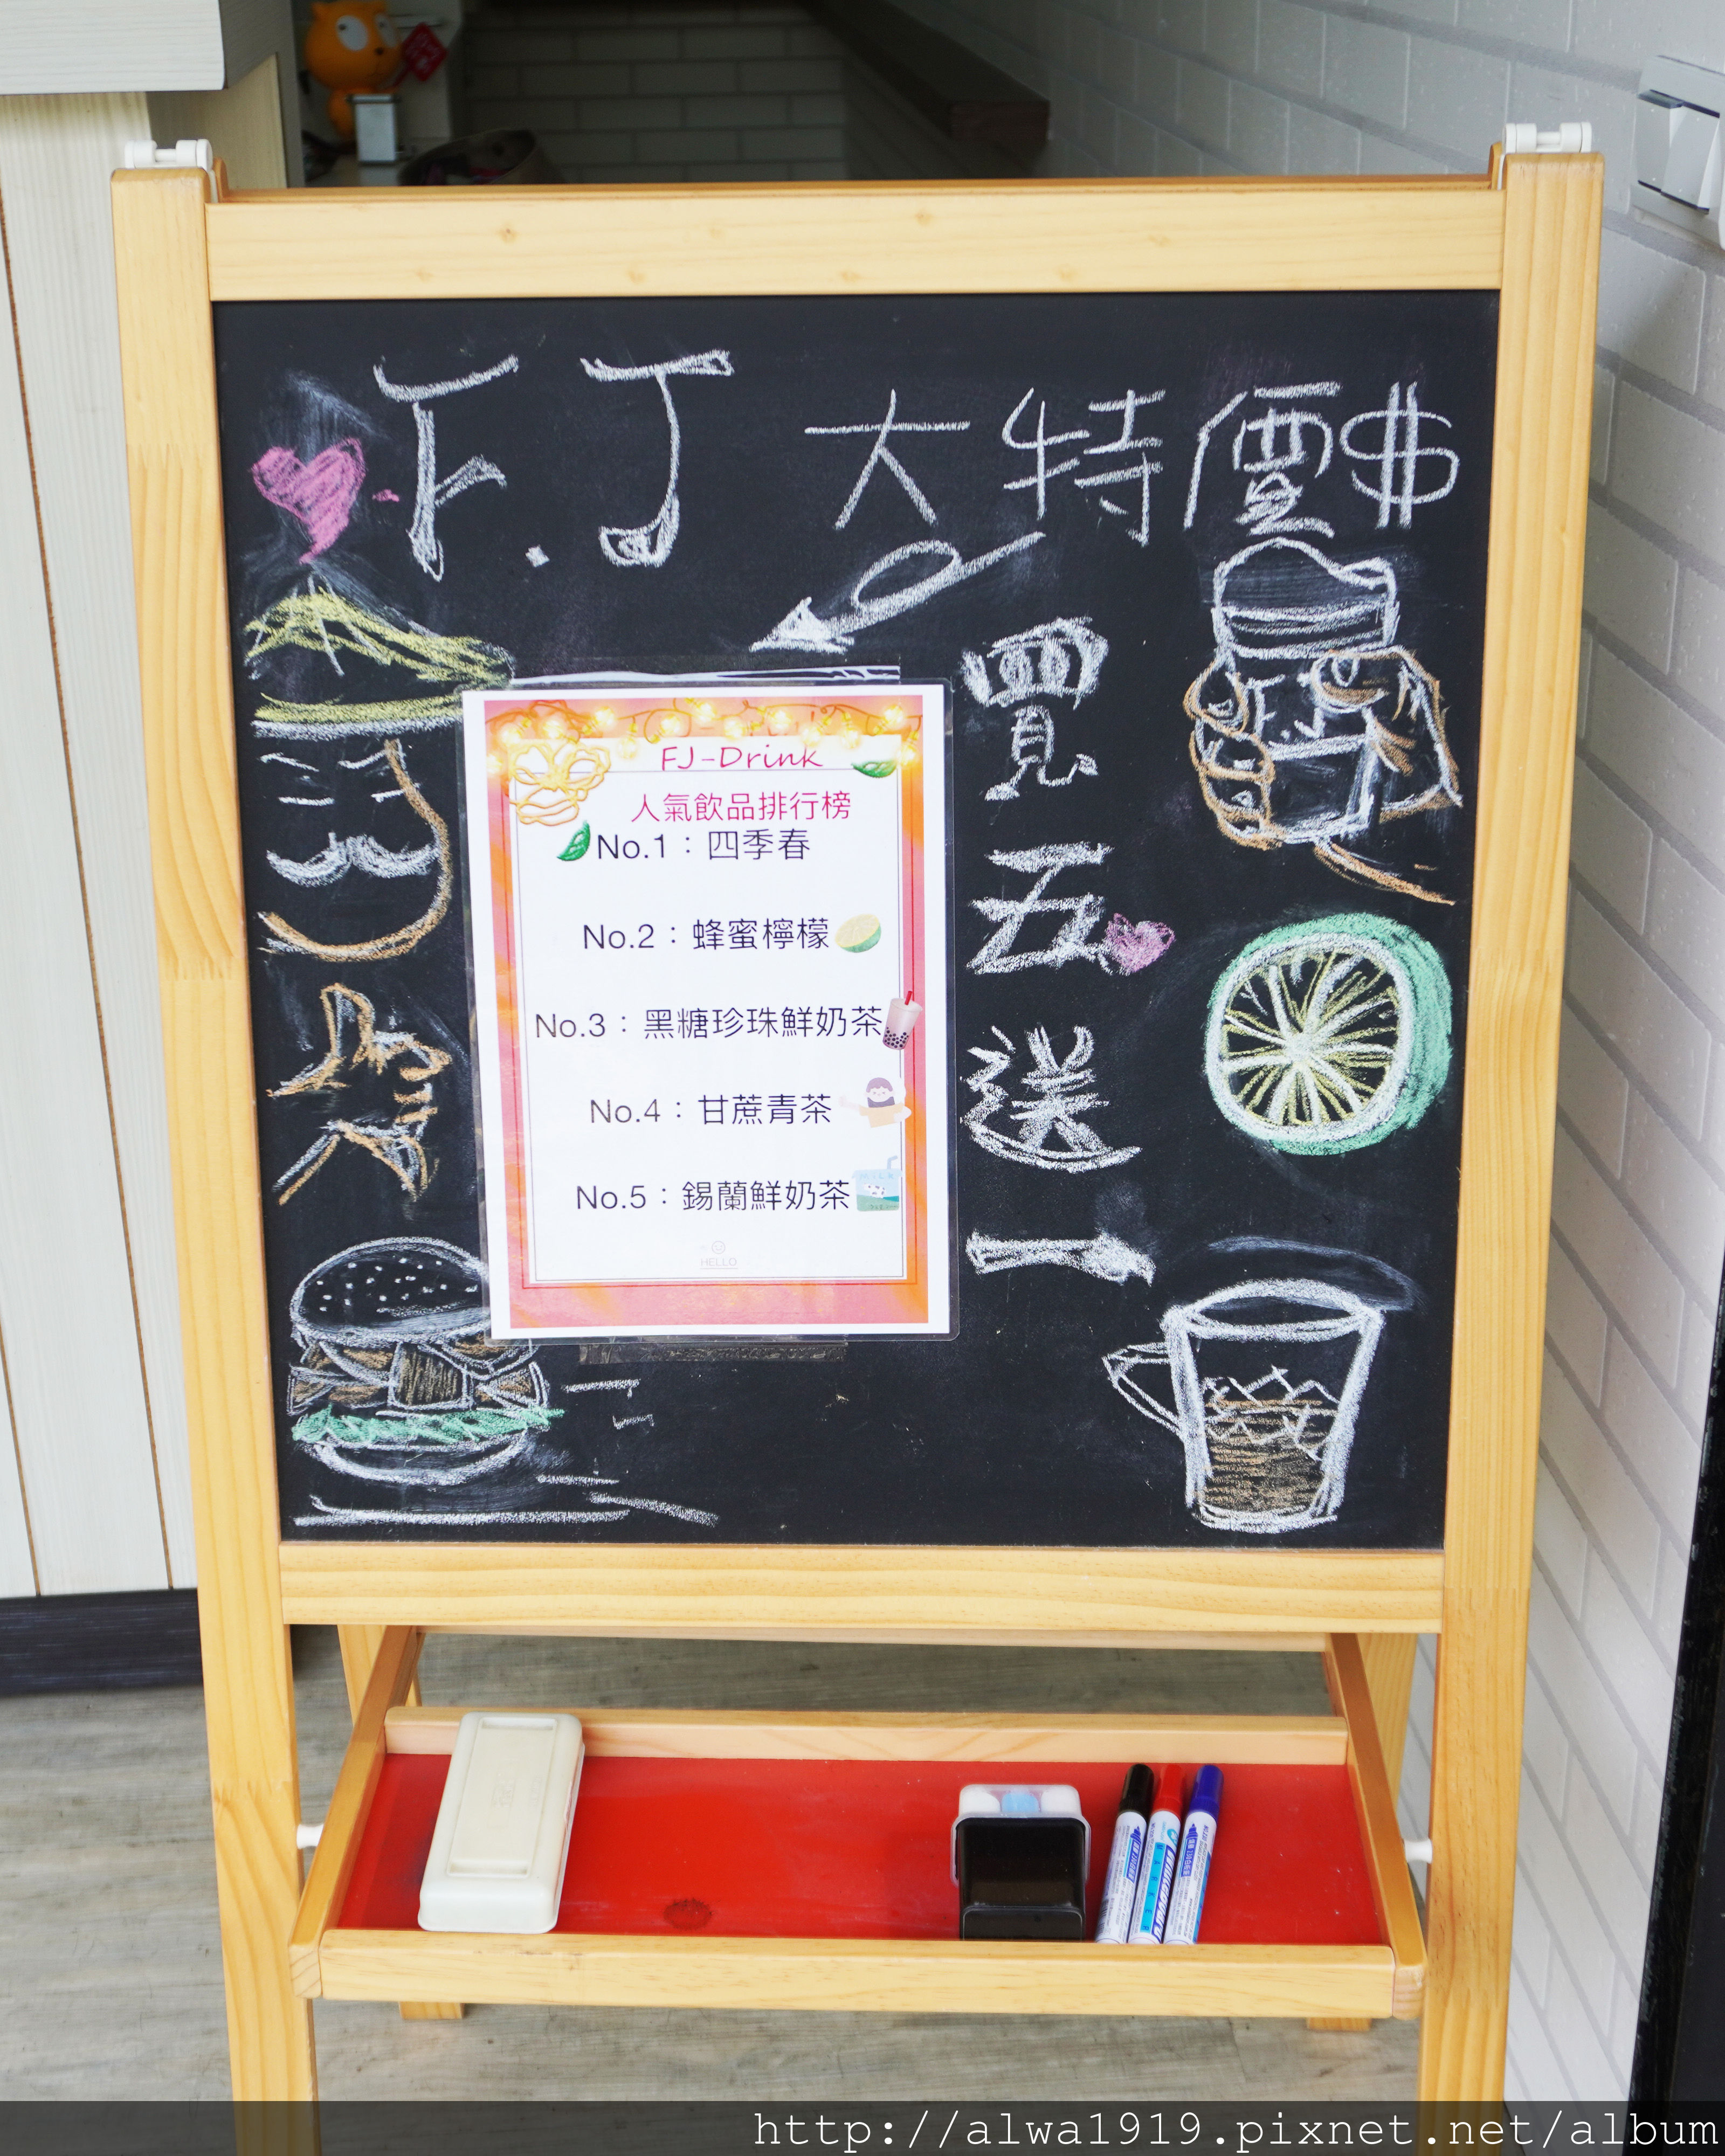 F.J 大特價$
買五送一
F.J
FJ-Drink
人氣飲品排行榜
No.1：四季春
No.2：蜂蜜檸檬
No.3：黑糖珍珠鮮奶茶
No.4：甘蔗青茶
No.5：錫蘭鮮奶茶
HELLO
http://alwa1919.pixnet.net/album